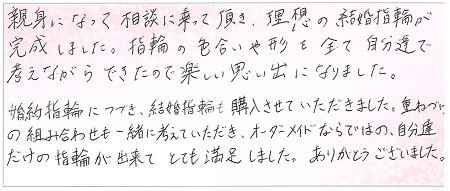 親身になって相談に乗って頂き、理想の結婚指輪が
完成しました。指輪の色合いや形を全て自分達で
考えながらできたので楽しい思い出になりました。
婚約指輪につづき、結婚指輪も購入させていただきました。重ねづけ
の組み合わせも一緒に考えていただき、オーダーメイドならではの、自分達
だけの指輪が出来てとても満足しました。ありがとうございました。